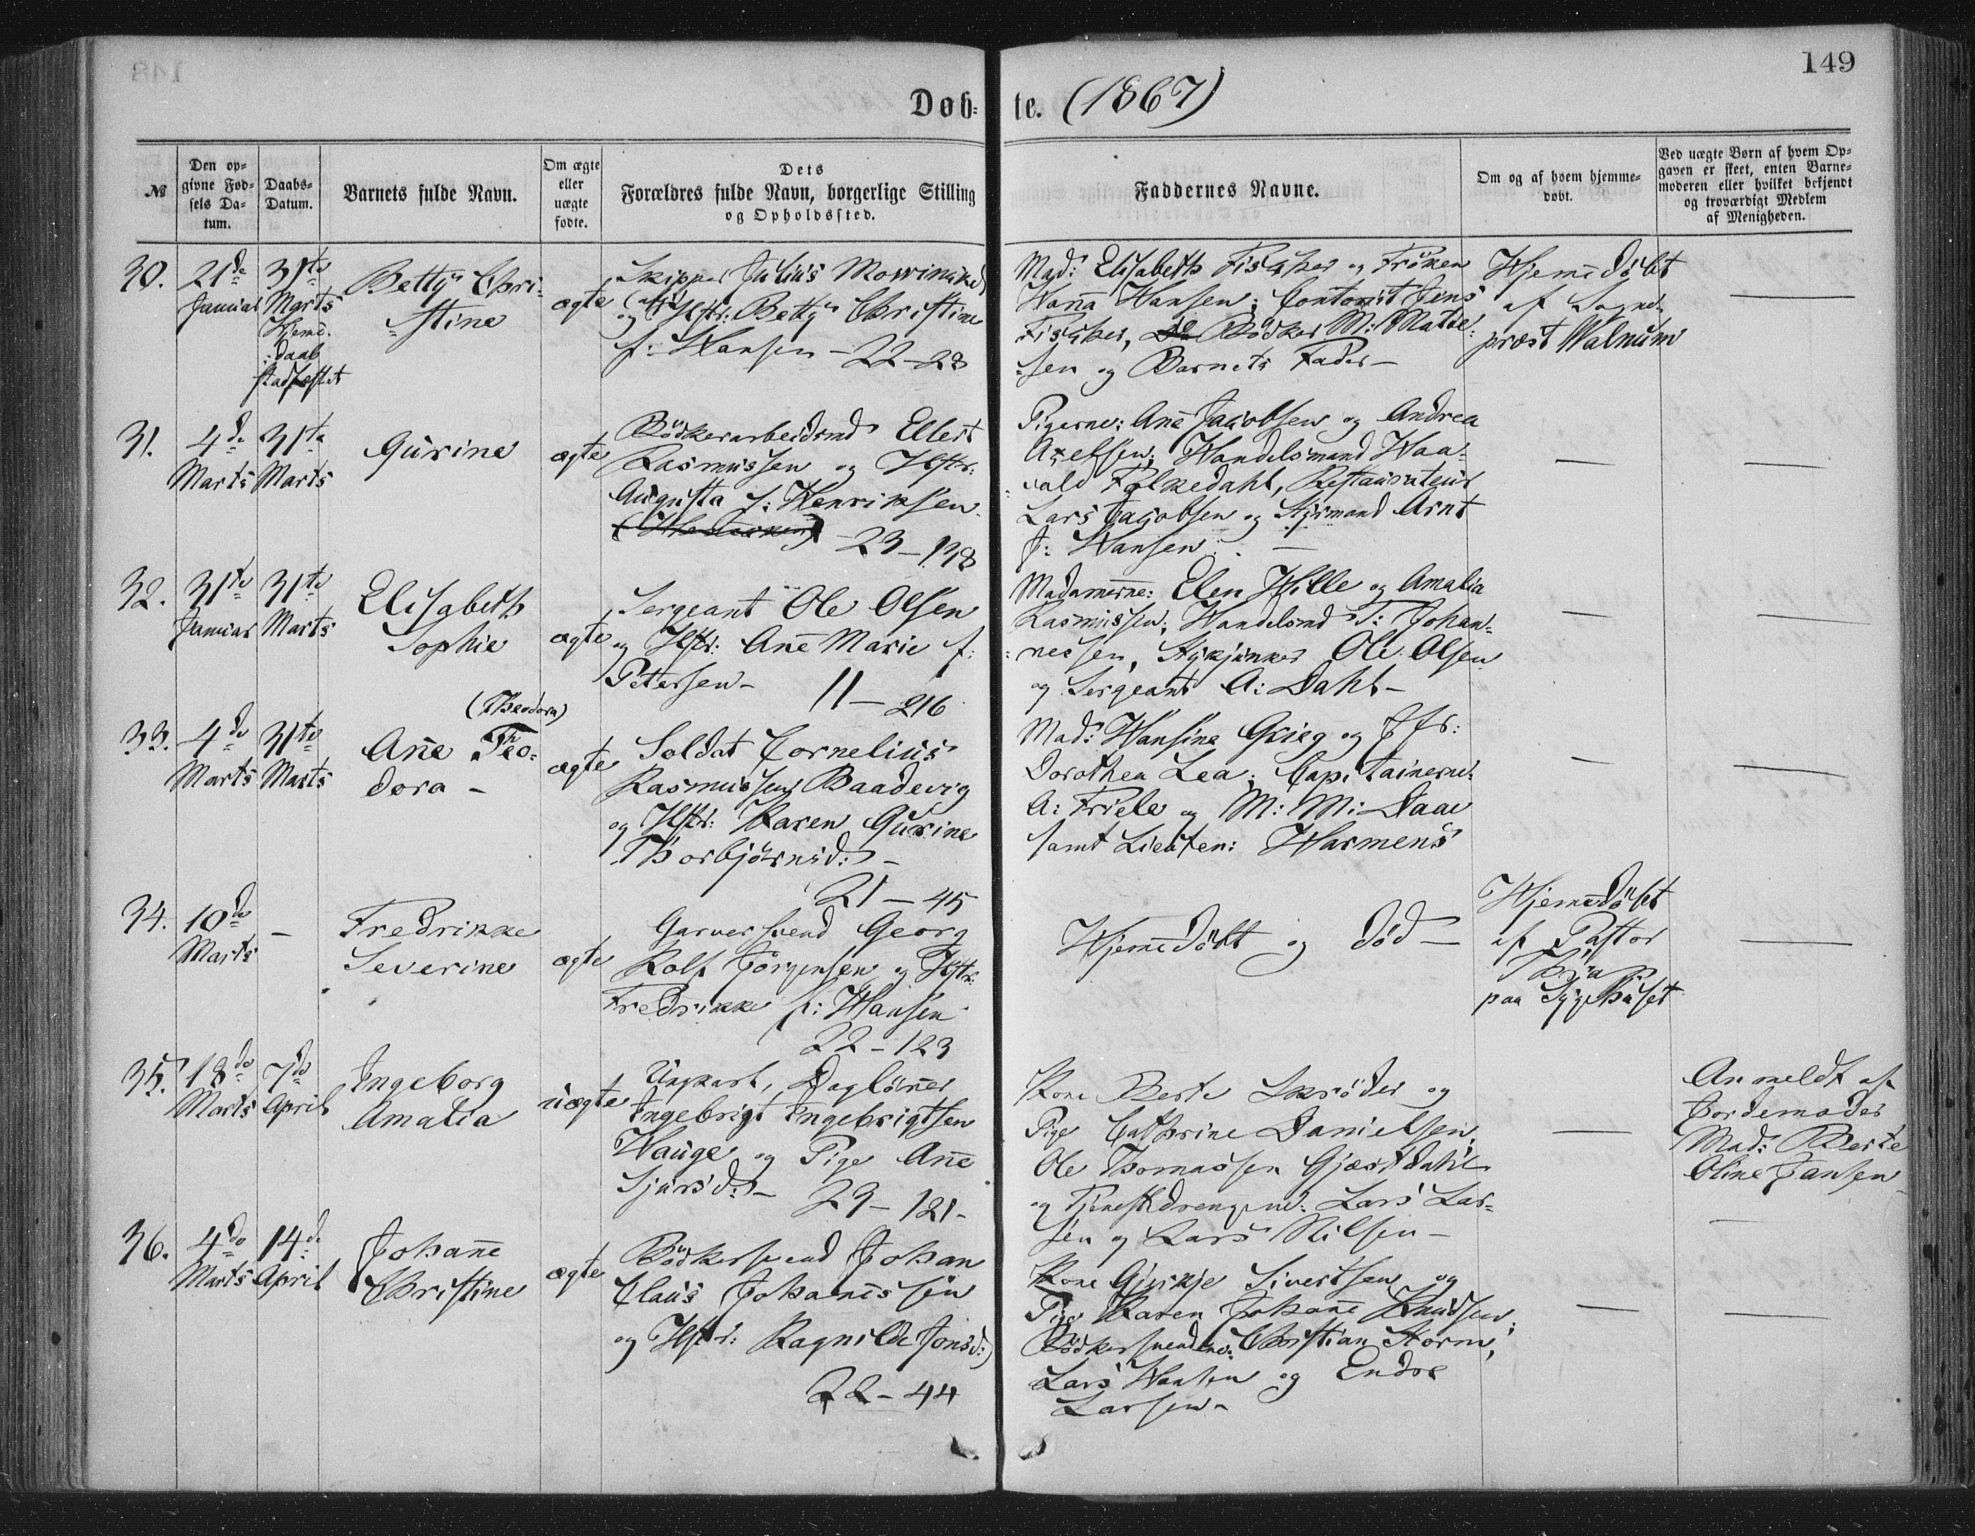 149
Døb-te. (1867)
№
Den op-
givne Fød-
sels Da-
tum.
Daabs-
Datum.
Barnets fulde Navn.
Om ægte
eller
uægte
fødte.
Dets
Forældres fulde Navn, borgerlige Stilling
og Opholdssted.
Faddernes Navne.
Om og af hvem hjemme-
døbt.
Ved uægte Børn af hvem Op-
gaven er skeet, enten Barne-
moderen eller hvilket bekjendt
og troværdigt Medlem
af Menigheden.
30.
21de
Januar
31te
Marts
Hjeme-
daab
stadfæstet
Betty Chri-
stine
ægte
Skipper Julius
og Hstr: Betty Christine
f: Hansen - 22-28
Mad: Elisabeth Fischer og Frøken
Hanna Hansen; Contorist Jens
Fischer, Bødker M: Mathie-
sen og Barnets Fader -
Hjemedøbt
af Sogne-
præst Walnum
—
31.
4de
Marts
31te
Marts
Gurine
ægte
Bødkerarbeidsmd Ellert
Rasmussen og Hstr:
Augusta f: Henriksen
23-138
Pigerne: Ane Jacobsen og Andrea
Axelsen; Handelsmand Haa-
vald Folkedahl, Restaurateur
Lars Jacobsen og Styrmand Arnt
J: Hansen -
—
—
32.
31te
Januar
31te
Marts
Elisabeth
Sophie
ægte
Sergeant Ole Olsen
og Hstr: Ane Marie f:
Petersen - 11-216
Madamerne: Elen Hille og Amalia
Rasmussen; Handelsmd T: Johan-
nessen, Stykjunker Ole Olsen
og Sergeant A: Dahl -
—
—
33.
4de
Marts
31te
Marts
(Theodora)
Ane Theo-
dora -
ægte
Soldat Cornelius
Rasmussen Baadevig
og Hstr: Karen Gurine
Thorbjørnsd: -
21-45
Mad: Hansine Grieg og Jfr:
Dorothea Lea; Capitainerne
A: Friele og M: M: Daae
samt Lieuten: Harmens
—
—
34.
10de
Marts
—
Fredrikke
Severine
ægte
Garversvend Georg
Rolf Jørgensen og Hstr:
Fredrikke f: Hansen
22-123
Hjemedøbt og død -
Hjemedøbt
af Pastor
paa Sygehuset
—
35.
18de
Marts
7de
April
Ingeborg
Amalia
uægte
Ungkarl, Dagløner
Ingebrigt Ingebrigtsen
Hauge og Pige Ane
Sjursd: -
23-121-
Kone Berte Skrøder og
Pige Cathrine Danielsen,
Ole Thomassen Gjæsdahl
og Tjenestdrengene: Lars Lar-
sen og Lars Nilsen -
—
Anmeldt af
Jordemoder
Mad: Berte
Oline Jansen
—
36.
4de
Marts
14de
April
Johane
Christine
ægte
Bødkersvend Johan
Claus Johanessen
og Hstr: Ragnilde Jonsd:
22-44
Kone Gjertje Sivertsen og
Pige Karen Johane Knudsen;
Bødkersvendene: Christian Storm,
Lars Hansen og Endre
Larsen -
—
—